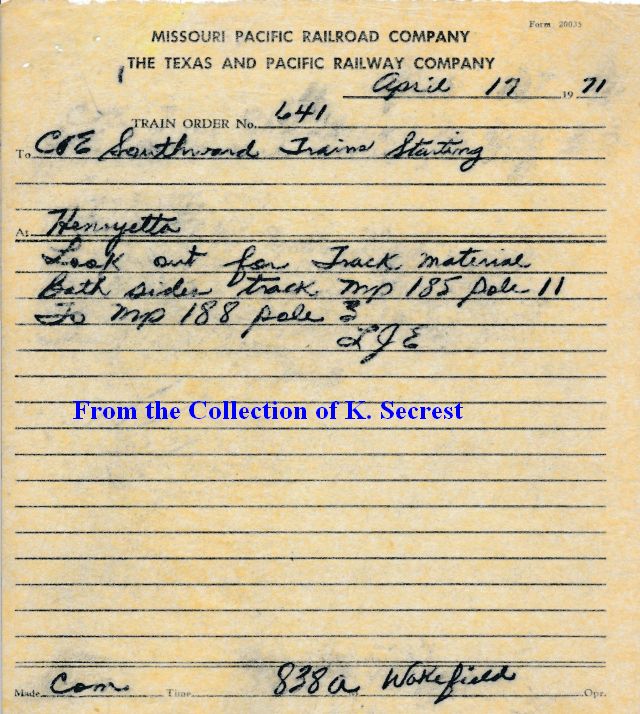 Form 20035
MISSOURI PACIFIC RAILROAD COMPANY
THE TEXAS AND PACIFIC RAILWAY COMPANY
April 17 1971
TRAIN ORDER No. 641
To C&E Southward Trains Starting
At Henryetta
Look out for Track material
Both sides track MP 185 pole 11
To MP 188 pole 3
LJE
From the Collection of K. Secrest
Made Com Time 838a Wakefield Opr.